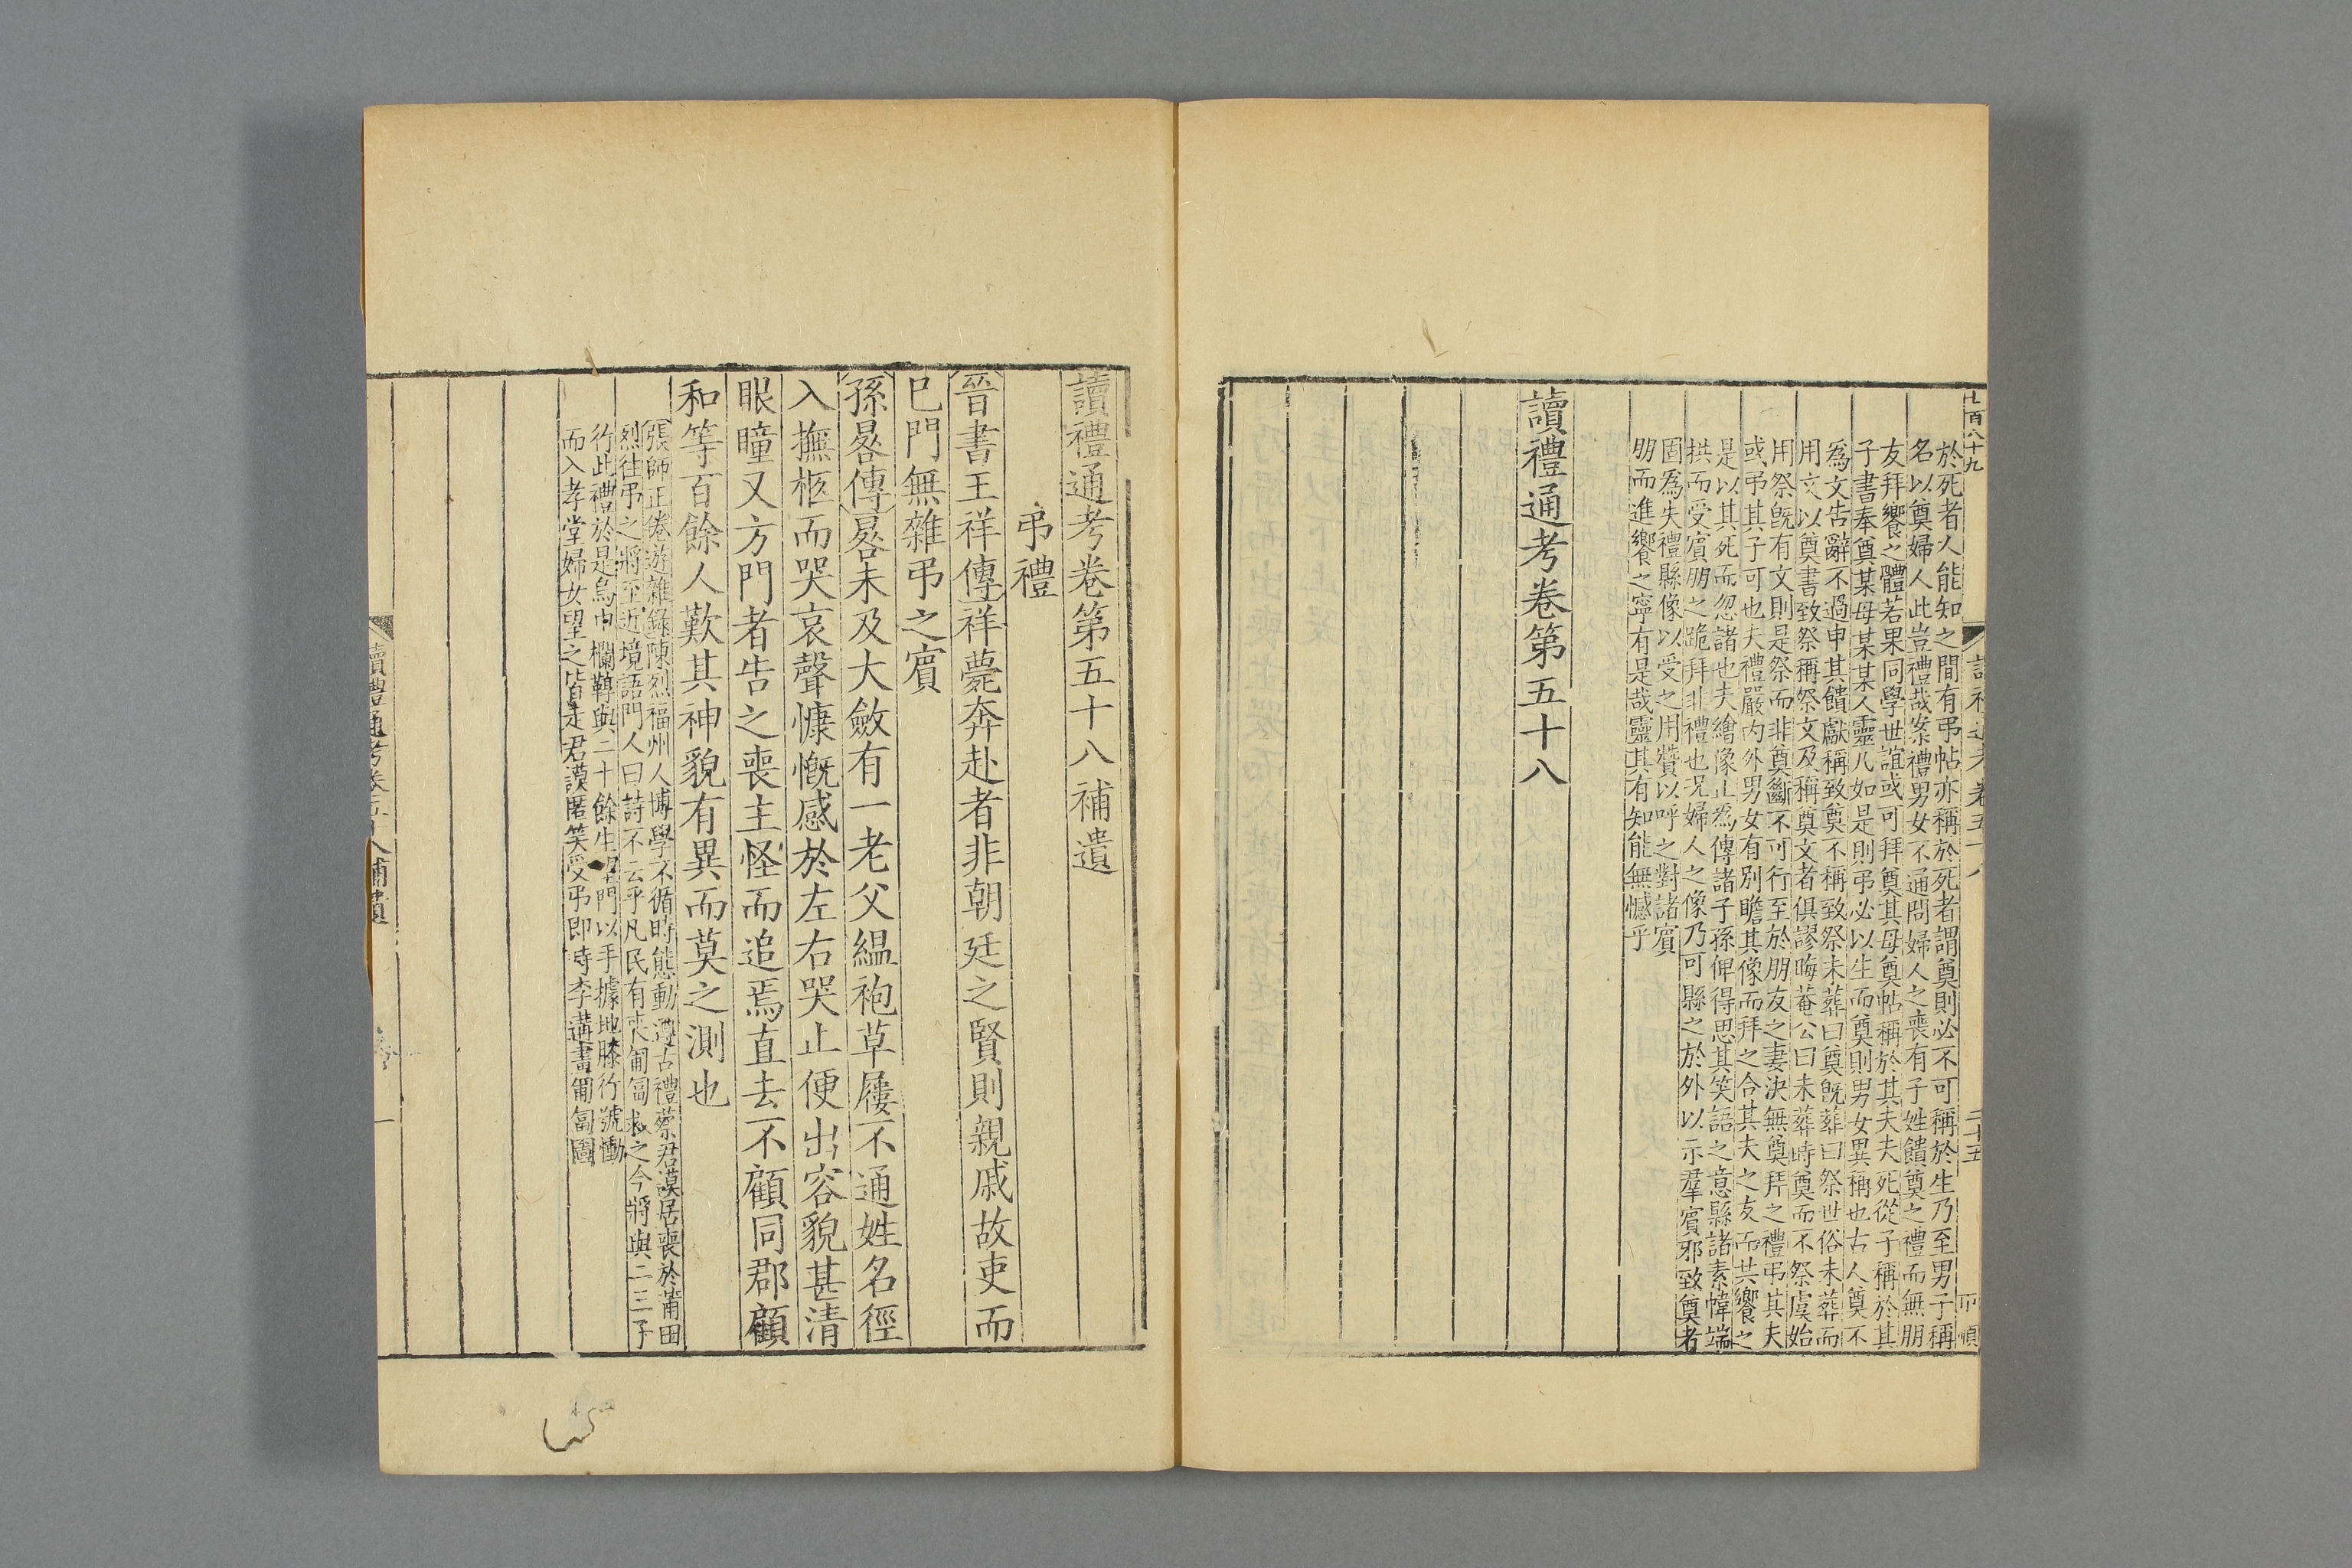 七百八十九
於死者人能知之間有弔帖亦稱於死者謂奠則必不可稱於生乃至男子稱
名以奠婦人此豈禮哉案禮男女不通問婦人之喪有子姓饋奠之禮而無朋
友拜饗之體若果同學世誼或可拜奠其母奠帖稱於其夫夫死從子稱於其
子書奉奠某母某某人靈几如是則弔必以生而奠則男女異稱也古人奠不
爲文告辭不過申其饋獻稱致奠不稱致祭未葬曰奠旣葬曰祭世俗未葬而
用文以奠書致祭稱祭文及稱奠文者俱謬晦菴公曰未葬時奠而不祭虞始
用祭旣有文則是祭而非奠斷不可行至於朋友之妻決無奠拜之禮弔其夫
或弔其子可也夫禮嚴內外男女有別瞻其像而拜之合其夫之友而共饗之
是以其死而忽諸也夫繪像止爲傳諸子孫俾得思其笑語之意縣諸素幃端
拱而受賓朋之跪拜非禮也况婦人之像乃可縣之於外以示羣賓邪致奠者
固爲失禮縣像以受之用贊以呼之對諸賓
朋而進饗之寧有是哉靈其有知能無憾乎
讀禮通考卷第五十八
讀禮通考卷第五十八補遺
弔禮
晉書王祥傳祥薨奔赴者非朝廷之賢則親戚故吏而
巳門無雜弔之賓
孫晷傳晷未及大斂有一老父緼袍草屨不通姓名徑
入撫柩而哭哀聲慷慨感於左右哭止便出容貌甚清
眼瞳又方門者告之喪主怪而追焉直去不顧同郡顧
和等百餘人歎其神貌有異而莫之測也
張師正倦遊雜錄陳烈福州人博學不循時態動遵古禮蔡君謨居喪於莆田
烈往弔之將至近境語門人曰詩不云乎凡民有喪匍匐救之今將與二三子
行此禮於是烏巾欄鞹與二十餘生望門以手據地膝行號慟
而入孝堂婦女望之皆走君謨匿笑受弔即時李遘畫匍匐圖
讀禮通考卷五十八補遺
一